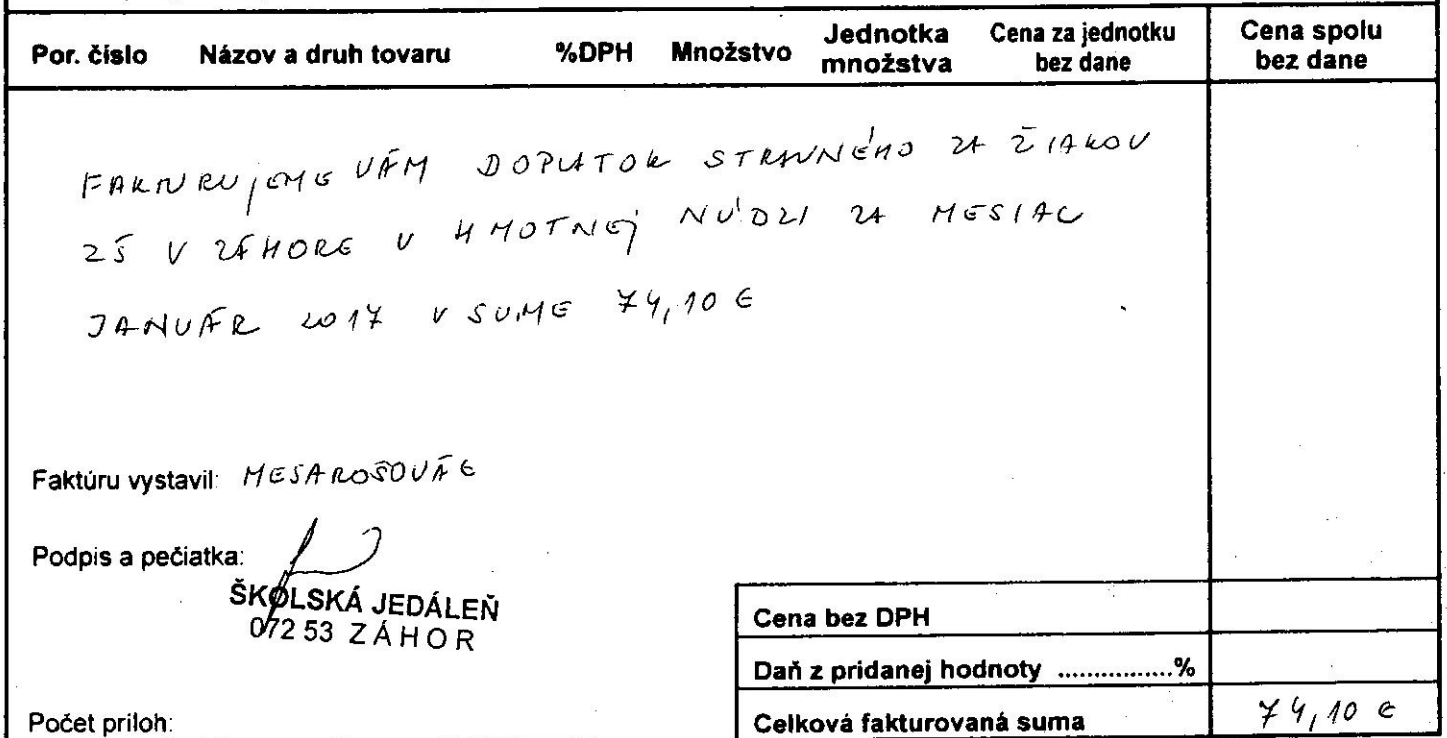 Por. číslo Názov a druh tovaru %DPH Množstvo Jednotka množstva Cena za jednotku bez dane Cena spolu bez dane
FAKTURUJEME VÁM DOPLATOK STRAVNÉHO ZA ŽIAKOV
ZŠ V ZÁHORE V HMOTNEJ NÚDZI ZA MESIAC
JANUÁR 2017 V SUME 74,10 €
Faktúru vystavil: MESAROŠOVÁ E
Podpis a pečiatka:
ŠKOLSKÁ JEDÁLEŇ
072 53 ZÁHOR
Cena bez DPH
Daň z pridanej hodnoty ................%
Počet príloh:
Celková fakturovaná suma 74,10 €